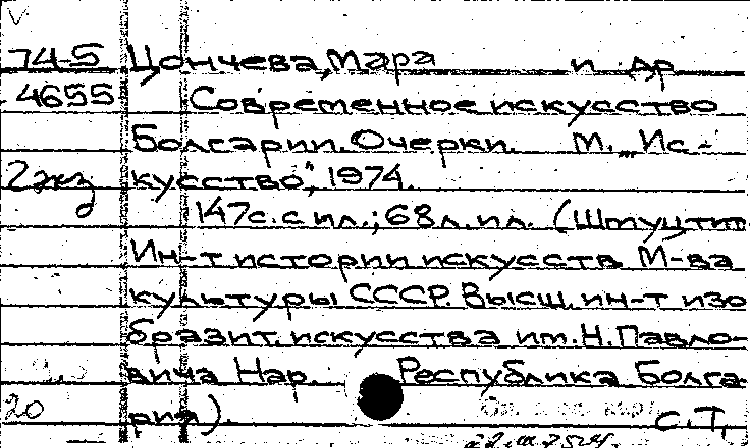 74-5 Цончева, Мара и др
4655 Современное искусство
Болгарии. Очерки. М. „Ис-
2 экз кусство", 1974.
147с. с ил.; 68л. ил. (Штуцтит
Ин-т истории искусств М-ва
культуры СССР. Высш. ин-т изо
бразит. искусства им. Н. Павло-
вича Нар. Республика Болга
20 рия). С.Т.